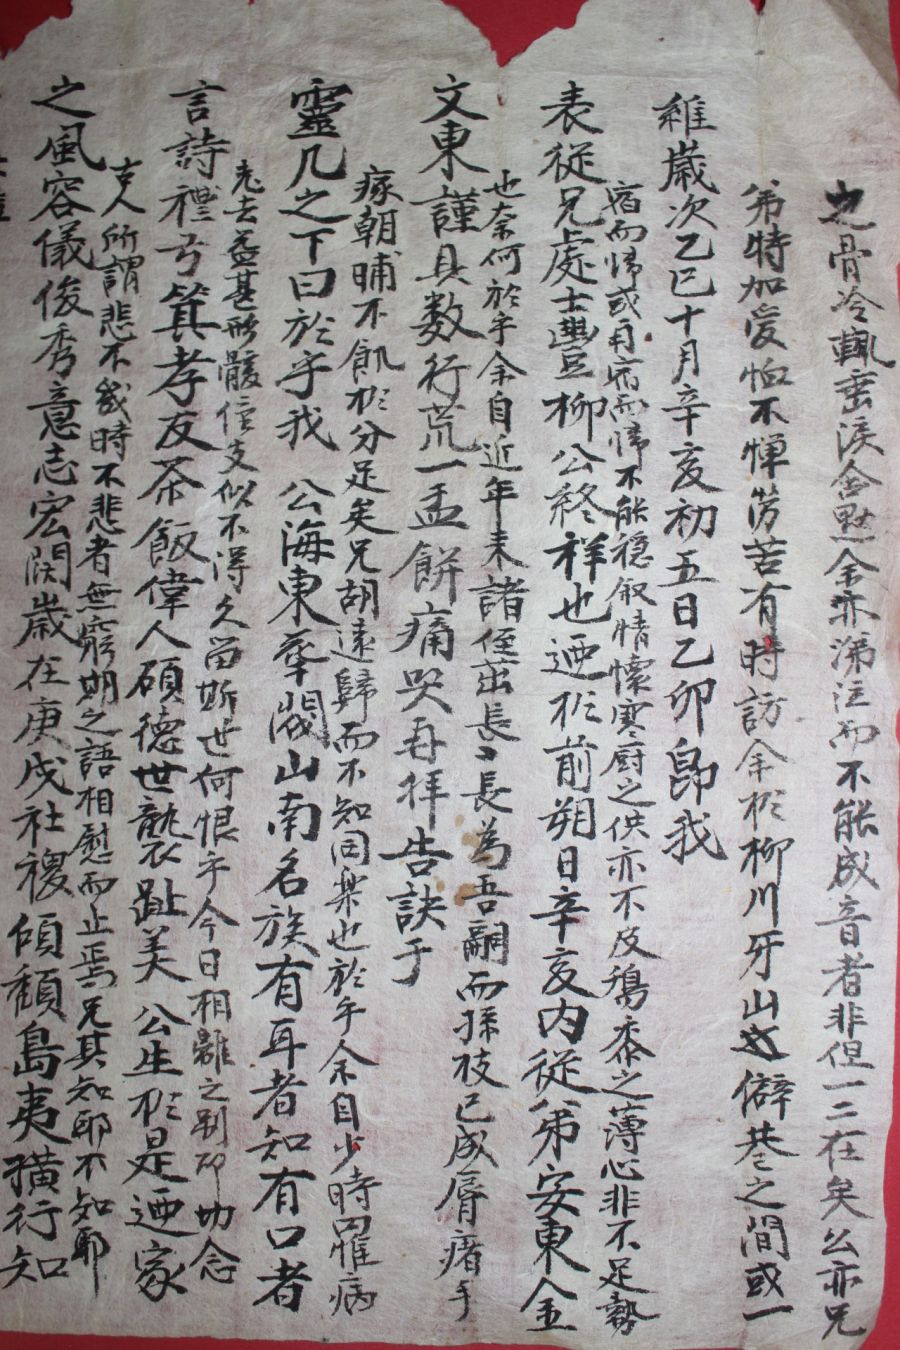 之骨冷輒垂淚含默余亦涕泣而不能成音者非但一二在矣公亦兄
弟特加愛恤不憚勞苦有時訪余於柳川牙山之僻巷之間或一
維歲次乙巳十月辛亥初五日乙卯卽我
宿而歸或再宿而歸不能穩叙情懷寒厨之供亦不及鷄黍之薄心非不足勢
表從兄處士豊柳公終祥也迺於前朔日辛亥內從弟安東金
也奈何於乎余自近年来諸侄茁長〻長為吾嗣而孫枝已成脣瘏手
文東謹具数行荒一盂餅痛哭再拜告訣于
瘃朝晡不飢於分足矣兄胡遠歸而不知同樂也於乎余自少時罹病
靈几之下曰於乎我 公海東華閥山南名族有耳者知有口者
老去益甚形骸僅支似不得久留斯世何恨乎今日相離之別却切念
言詩禮弓箕孝友茶飯偉人碩德世襲趾美 公生於是迺家
古人所謂悲不幾時不悲者無窮期之語相慰而止焉兄其知耶不知耶
之風容儀俊秀意志宏闊歲在庚戌社稷傾頹島夷橫行知